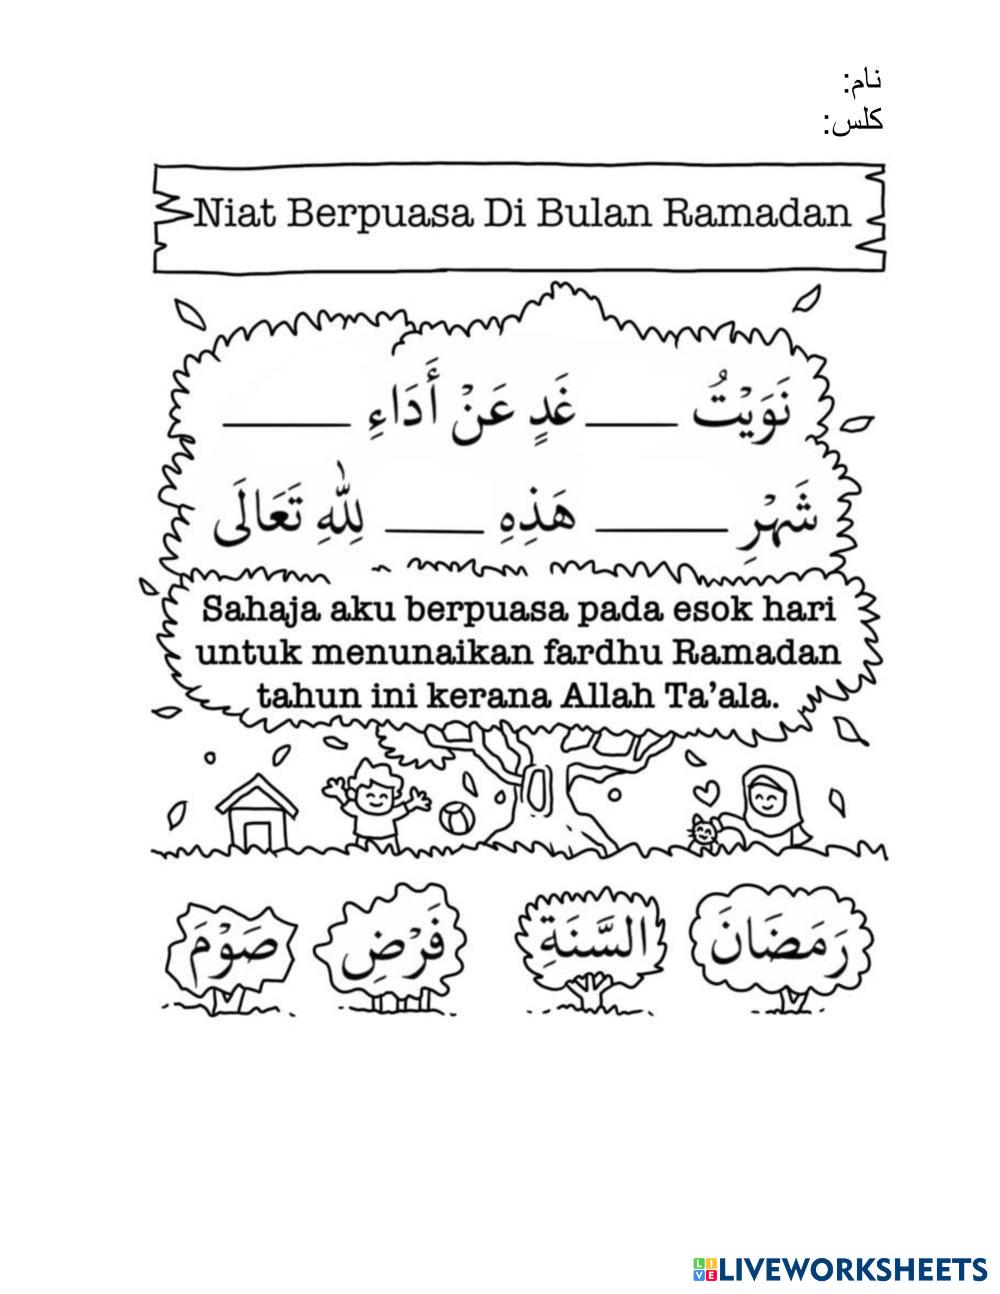 نام:
کلس:
Niat Berpuasa Di Bulan Ramadan
نَوَيْتُ ____ غَدٍ عَنْ أَدَاءِ ____
شَهْرِ ____ هَذِهِ ____ لِلّٰهِ تَعَالَى
Sahaja aku berpuasa pada esok hari
untuk menunaikan fardhu Ramadan
tahun ini kerana Allah Ta’ala.
صَوْمَ فَرْضِ السَّنَةِ رَمَضَانَ
LIVE LIVEWORKSHEETS